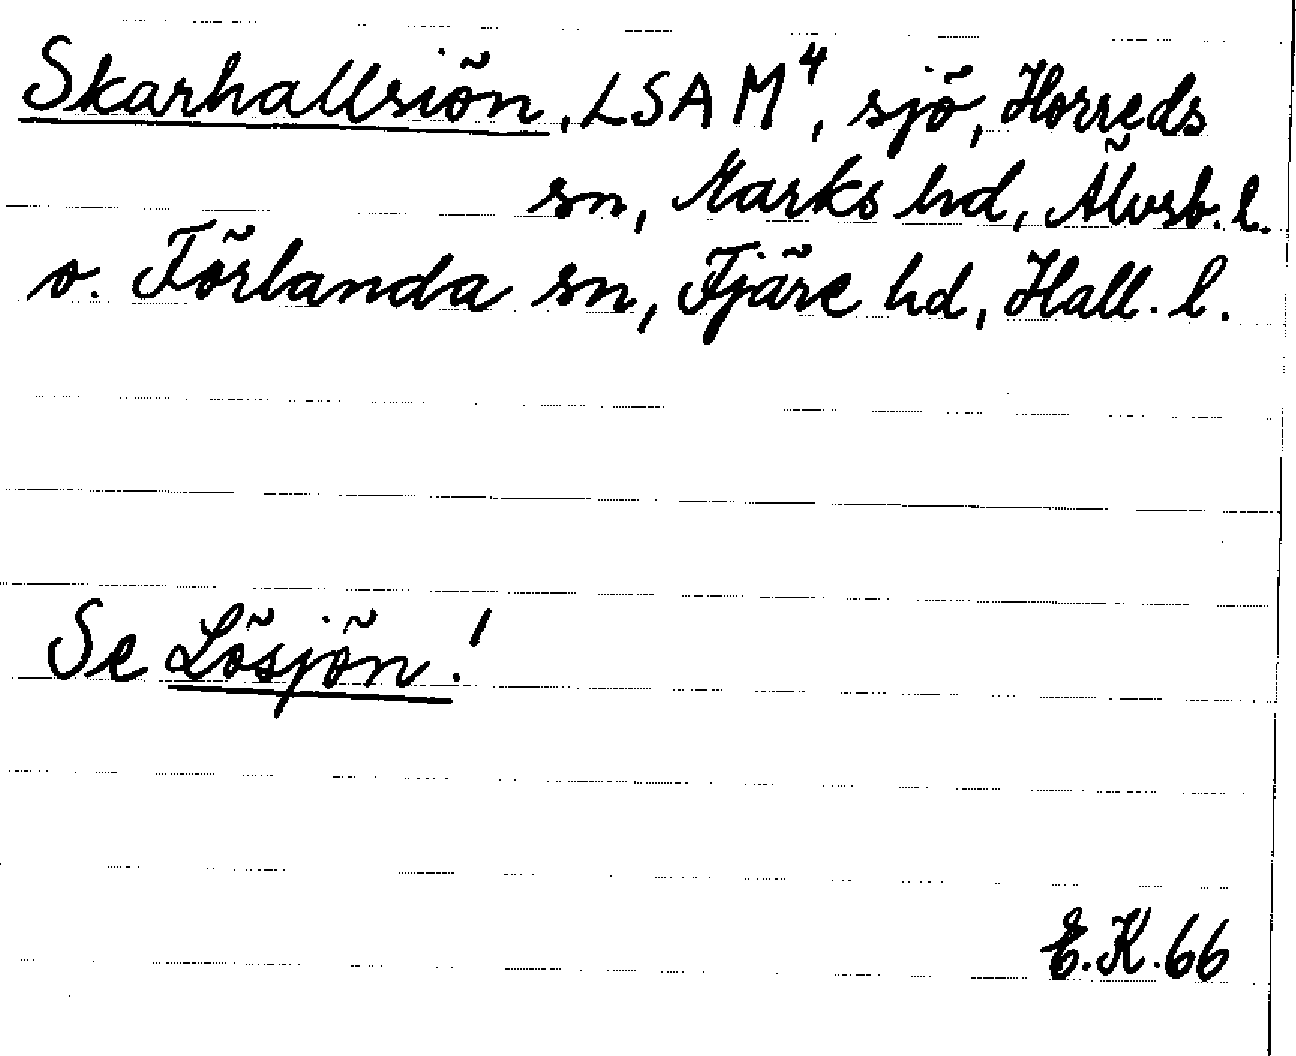 Skarhallsiön, LSA M⁴, sjö, Horreds
sn, Marks hd, Älvsb. l.
o. Förlanda sn, Fjäre hd, Hall. l.
Se Lösjön!
E.K.66